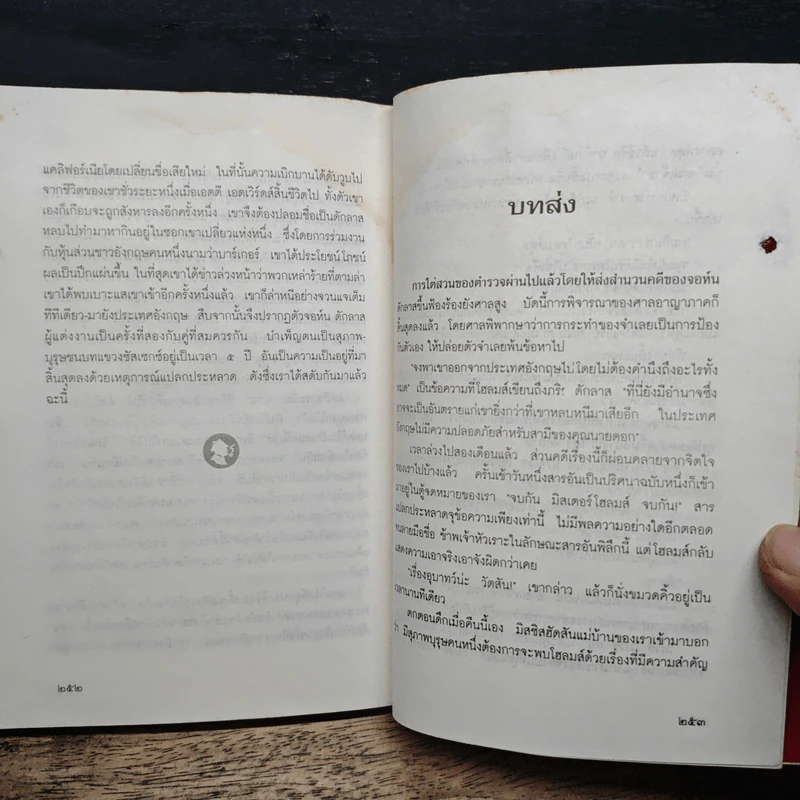 แคลิฟอร์เนียโดยเปลี่ยนชื่อเสียใหม่ ในที่นั้นความเบิกบานได้ดับวูบไป
จากชีวิตของเขาชั่วระยะหนึ่งเมื่อเอตตี เอดเวิร์ดส์สิ้นชีวิตไป ทั้งตัวเขา
เองก็เกือบจะถูกสังหารลงอีกครั้งหนึ่ง เขาจึงต้องปลอมชื่อเป็นดักลาส
หลบไปทำมาหากินอยู่ในซอกเขาเปลี่ยวแห่งหนึ่ง ซึ่งโดยการร่วมงาน
กับหุ้นส่วนชาวอังกฤษคนหนึ่งนามว่าบาร์เกอร์ เขาได้ประโยชน์โภชน์
ผลเป็นปึกแผ่นขึ้น ในที่สุดเขาได้ข่าวล่วงหน้าว่าพวกเหล่าร้ายที่ตามล่า
เขาได้พบเบาะแสเขาเข้าอีกครั้งหนึ่งแล้ว เขาก็ล่าหนีอย่างจวนแจเต็ม
ทีทีเดียว-มายังประเทศอังกฤษ สืบจากนั้นจึงปรากฏตัวจอห์น ดักลาส
ผู้แต่งงานเป็นครั้งที่สองกับคู่ที่สมควรกัน บำเพ็ญตนเป็นสุภาพ-
บุรุษชนบทแขวงซัสเซกซ์อยู่เป็นเวลา ๕ ปี อันเป็นความเป็นอยู่ที่มา
สิ้นสุดลงด้วยเหตุการณ์แปลกประหลาด ดังซึ่งเราได้สดับกันมาแล้ว
ฉะนี้
๒๕๒
บทส่ง
การไต่สวนของตำรวจผ่านไปแล้วโดยให้ส่งสำนวนคดีของจอห์น
ดักลาสขึ้นฟ้องร้องยังศาลสูง บัดนี้การพิจารณาของศาลอาญาภาคก็
สิ้นสุดลงแล้ว โดยศาลพิพากษาว่าการกระทำของจำเลยเป็นการป้อง
กันตัวเอง ให้ปล่อยตัวจำเลยพ้นข้อหาไป
"จงพาเขาออกจากประเทศอังกฤษไปโดยไม่ต้องคำนึงถึงอะไรทั้ง
หมด" เป็นข้อความที่โฮลมส์เขียนถึงภริ ดักลาส "ที่นี่ยังมีอำนาจซึ่ง
อาจจะเป็นอันตรายแก่เขายิ่งกว่าที่เขาหลบหนีมาเสียอีก ในประเทศ
อังกฤษไม่มีความปลอดภัยสำหรับสามีของคุณนายดอก"
เวลาล่วงไปสองเดือนแล้ว ส่วนคดีเรื่องนี้ก็ผ่อนคลายจากจิตใจ
ของเราไปบ้างแล้ว ครั้นเช้าวันหนึ่งสารอันเป็นปริศนาฉบับหนึ่งก็เข้า
มาอยู่ในตู้จดหมายของเรา "จบกัน มิสเตอร์โฮลมส์ จบกัน!" สาร
แปลกประหลาดจุข้อความเพียงเท่านี้ ไม่มีพลความอย่างใดอีกตลอด
จนลายมือชื่อ ข้าพเจ้าหัวเราะในลักษณะสารอันพิลึกนี้ แต่โฮลมส์กลับ
แสดงความเอาจริงเอาจังผิดกว่าเคย
"เรื่องอุบาทว์น่ะ วัตสัน!" เขากล่าว แล้วก็นั่งขมวดคิ้วอยู่เป็น
เวลานานทีเดียว
ตกตอนดึกเมื่อคืนนี้เอง มิสซิสฮัดสันแม่บ้านของเราเข้ามาบอก
ว่า มีสุภาพบุรุษคนหนึ่งต้องการจะพบโฮลมส์ด้วยเรื่องที่มีความสำคัญ
๒๕๓